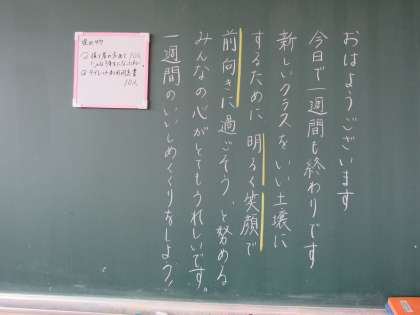 おはようございます
今日で一週間も終わりです
新しいクラスをいい土壌に
するために明るく笑顔で
前向きに過ごそう、と努める
みんなの心がとてもうれしいです。
一週間のいいしめくくりをしよう！
提出物